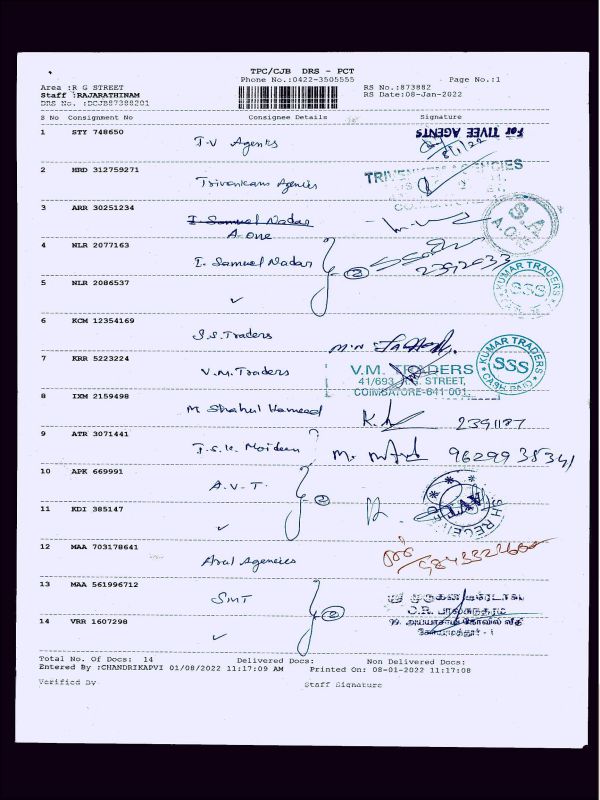 TPC/CJB DRS - PCT
Phone No.:0422-3505555 Page No.:1
Area :R G STREET RS No.:873882
Staff :RAJARATHINAM RS Date:08-Jan-2022
DRS No. :DCJB87388201
S No Consignment No Consignee Details Signature
1 STY 748650 T-V Agents For TIVEE AGENTS 8/1/22
2 HRD 312759271 Trivenkam Agencies
3 ARR 30251234 I. Samuel Nadar
A-one S.A. A.ONE
4 NLR 2077163 I. Samuel Nadar 2
5 NLR 2086537 ✓ KUMAR TRADERS SSS
6 KCM 12354169 S.S. Traders KUMAR TRADERS SSS CASH PAID
7 KRR 5223224 V.M. Traders V.M. TRADERS
41/693, STREET,
COIMBATORE-641 001.
8 IXM 2159498 M Shahul Hameed 2391187
9 ATR 3071441 T.S.K. Moideen 9629935341
10 APK 669991 A.V.T. 2 AVT
11 KDI 385147 ✓
12 MAA 703178641 Arul Agencies
13 MAA 561996712 SMT 2 ஸ்ரீ முருகன்
14 VRR 1607298 ✓ 99, அய்யாசாமி கோவில் வீதி
கோயமுத்தூர் - 1
Total No. Of Docs: 14 Delivered Docs: Non Delivered Docs:
Entered By :CHANDRIKAPVI 01/08/2022 11:17:09 AM Printed On: 08-01-2022 11:17:08
Verified By Staff Signature